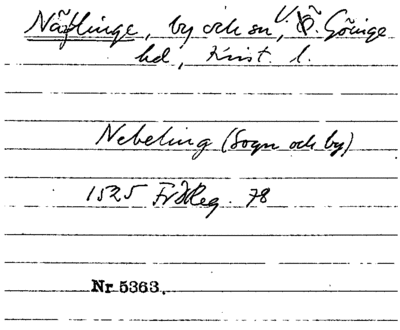 Näflinge, by och sn, V. Göinge
hd, Krist. l.
Nebeling (Sogn och by)
1525 FrIReg. 78
Nr 5363.